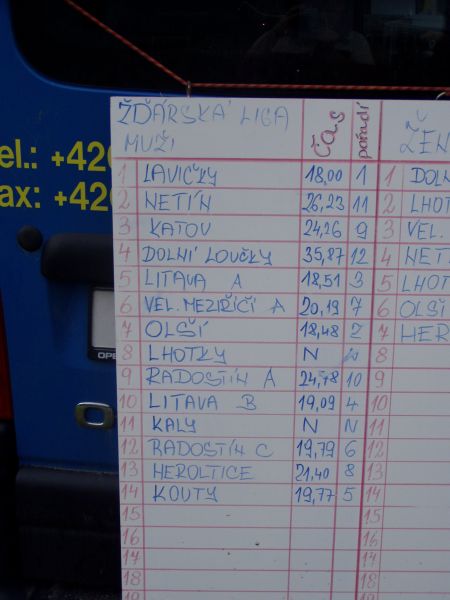 el.: +420
ax: +420
OPEL
ŽĎÁRSKÁ LIGA
MUŽI
čas
pořadí
ŽEN
1 LAVIČKY 18,00 1
2 NETÍN 26,23 11
3 KATOV 24,26 9
4 DOLNÍ LOUČKY 35,87 12
5 LITAVA A 18,51 3
6 VEL. MEZIŘÍČÍ A 20,19 7
7 OLŠÍ 18,48 2
8 LHOTKY N N
9 RADOSTÍN A 24,78 10
10 LITAVA B 19,09 4
11 KALY N N
12 RADOSTÍN C 19,79 6
13 HEROLTICE 21,40 8
14 KOUTY 19,77 5
15
16
17
18
1 DOLN
2 LHOT
3 VEL.
4 NET
5 LHOT
6 OLŠÍ
7 HER
8
9
10
11
12
13
14
15
16
17
18